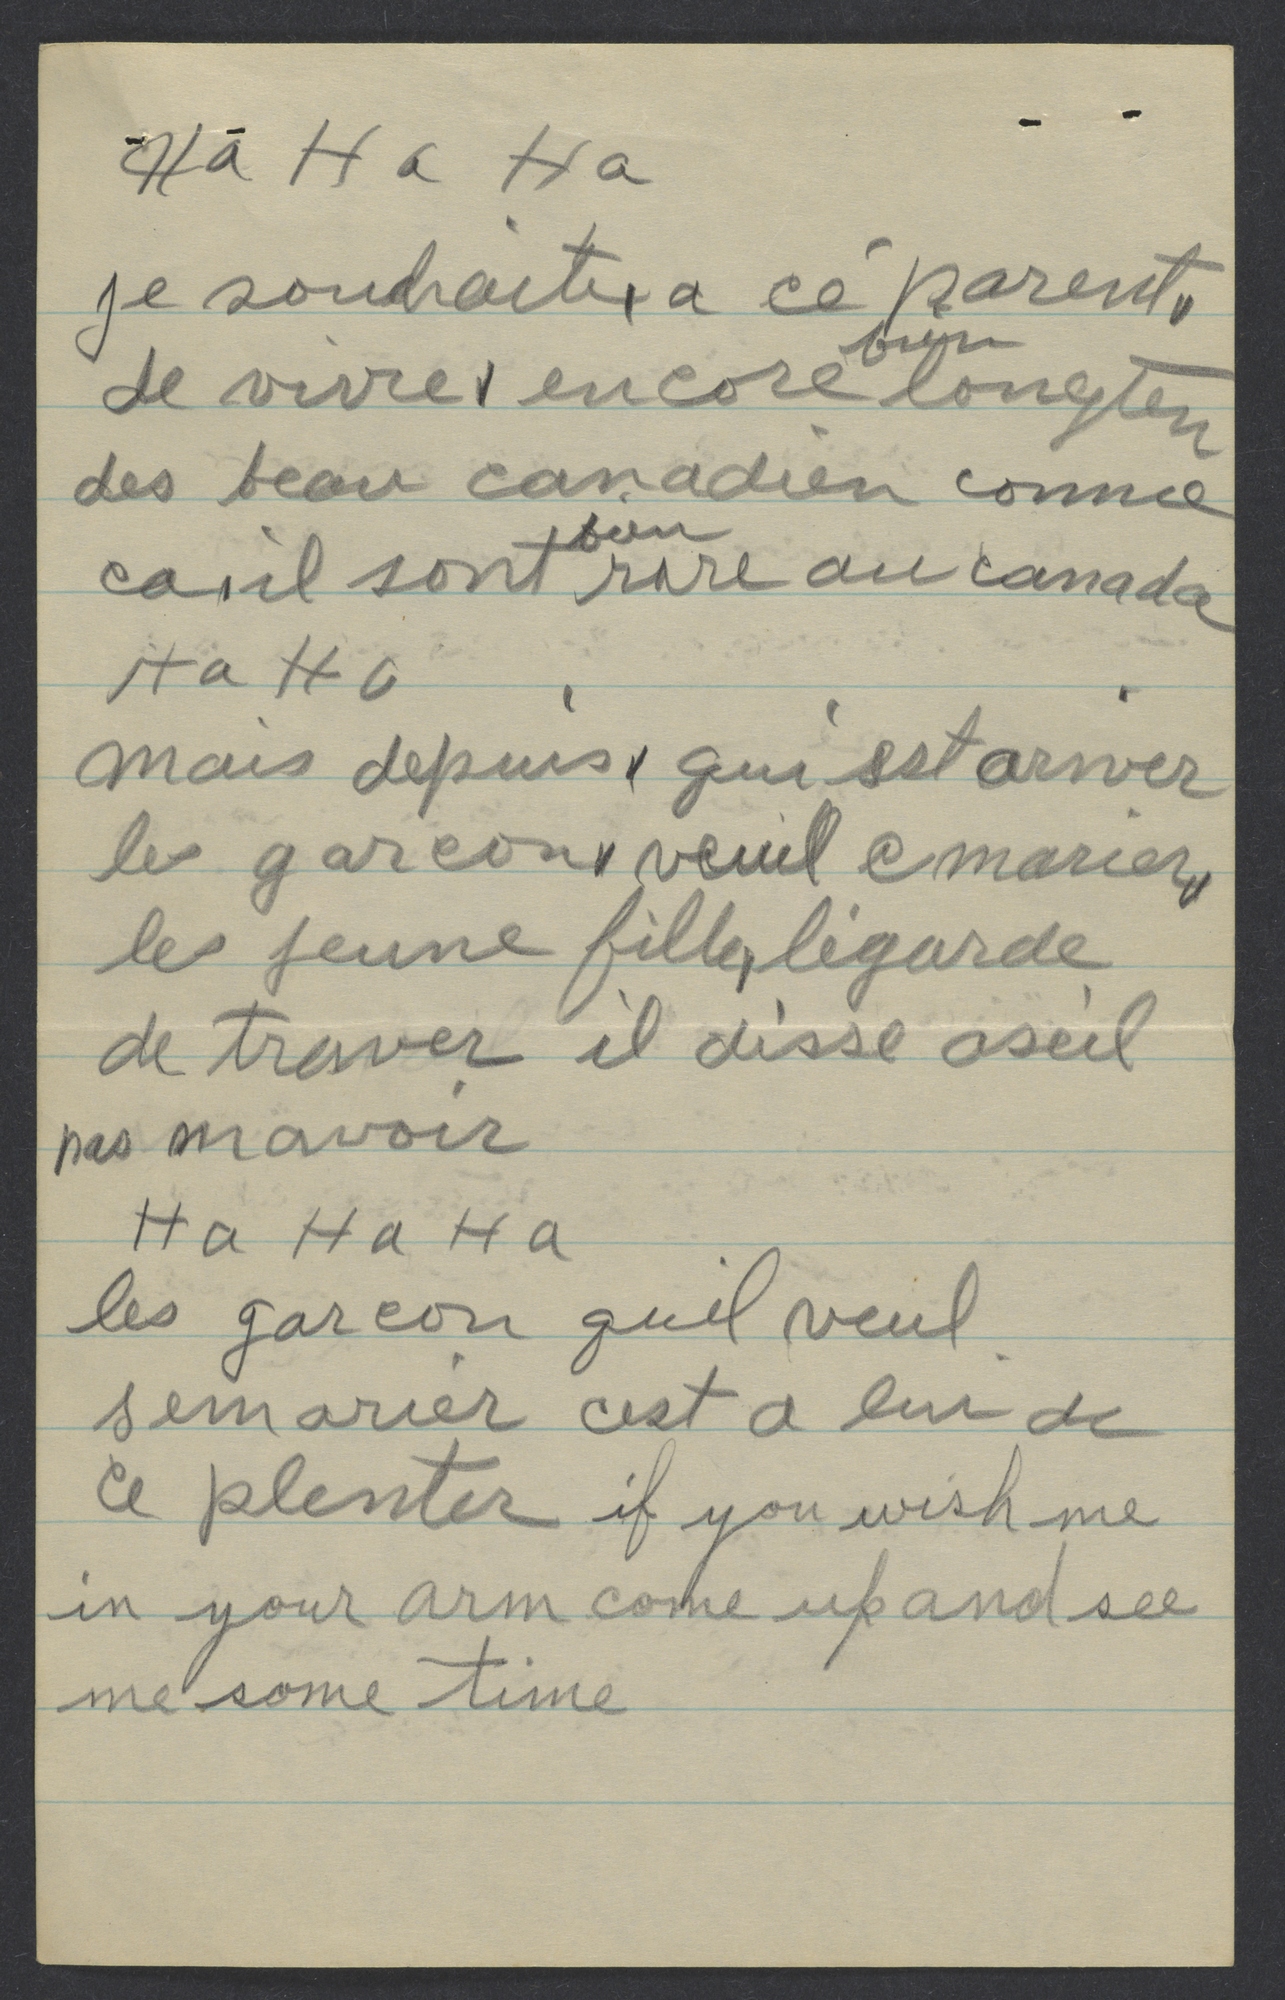 Ha Ha Ha
je souhaite, a cé parent,,
de vivre, encore bien longten
des beau canadien comme
ca, il sont bien rare au canada
Ha Ha
mais depuis, qui est arriver
les garcon,, veuil c marier,,
les jeune fille, légarde
de traver il disse aseil
pas mavoir
Ha Ha Ha
les garcon quil veul
semarier cest a lui de
ce plenter if you wish me
in your arm come up and see
me some time